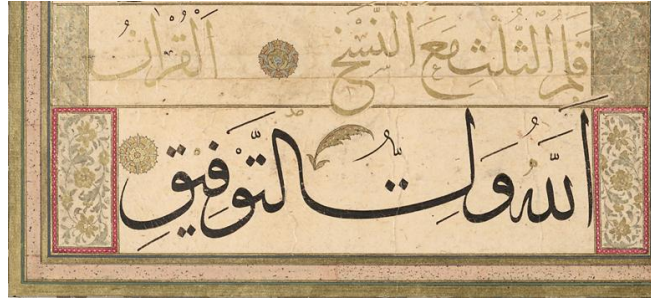 قلم الثلث مع النسخ القران
الله ولي التوفيق